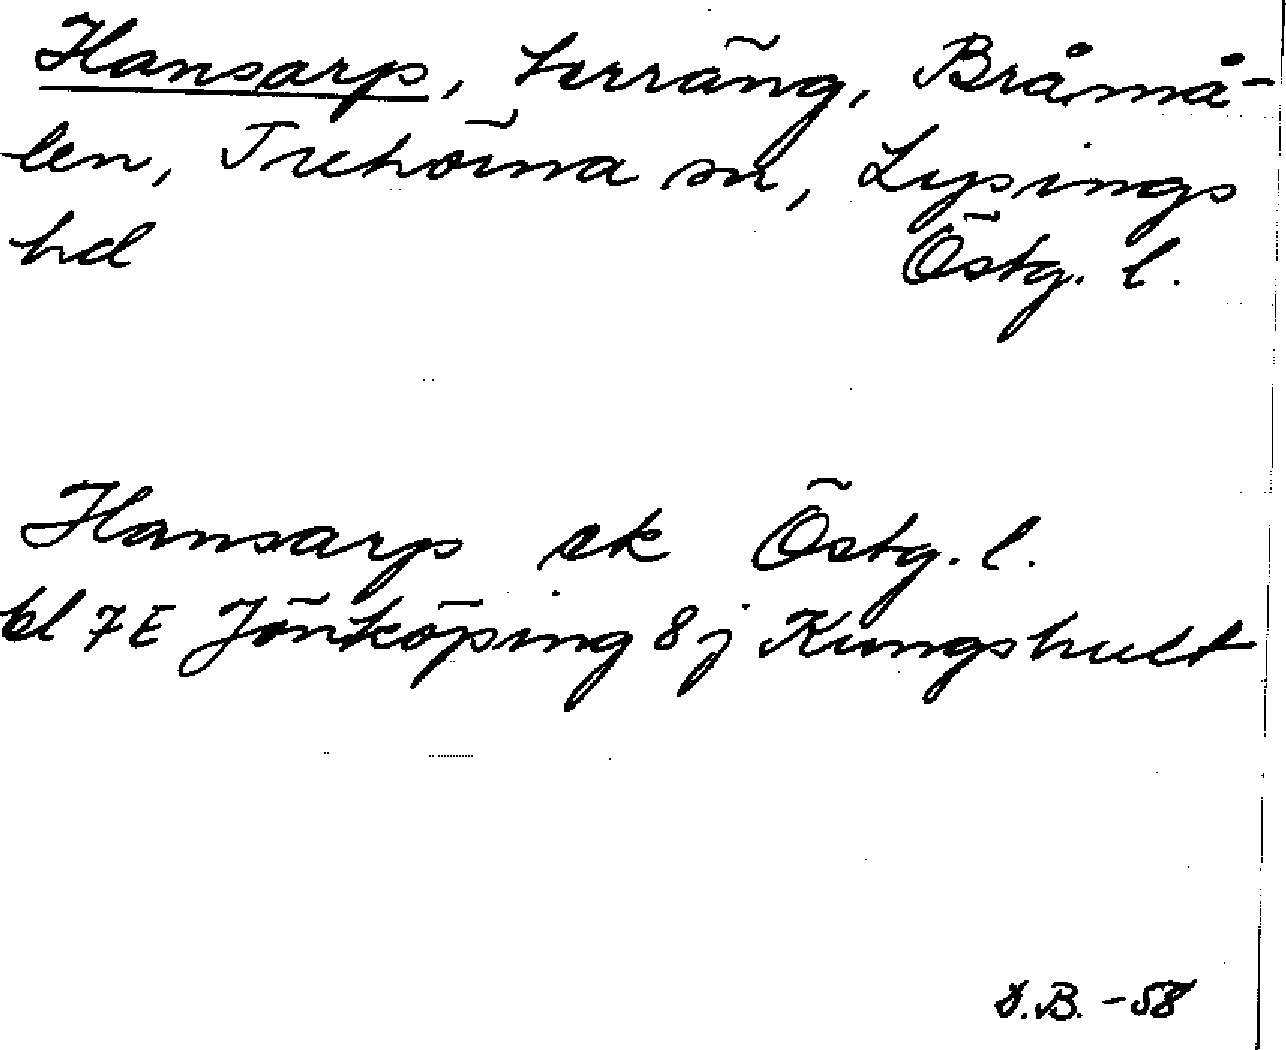 Hansarp, terräng, Bråmå-
len, Trehörna sn, Lysings
hd Östg. l.
Hansarp ek Östg. l.
bl 7E Jönköping 8j Kungshult
-58